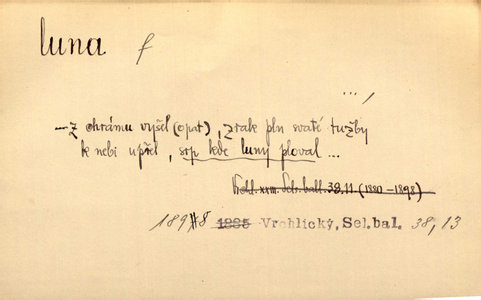 luna f
... ,
— z chrámu vyšel (opat), zrak pln svaté tužby
k nebi upřel, srp kde luny ploval ...
XXIII. Selv. ball. 38.11 (1880–1898)
1885 Vrchlický, Sel.bal. 38, 13